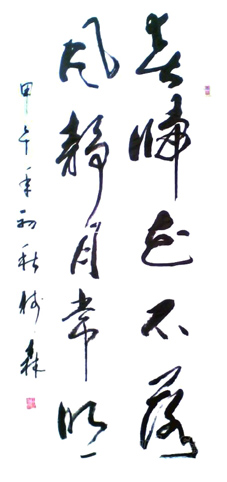 春归花不落
风静月常明
甲午年初秋树森